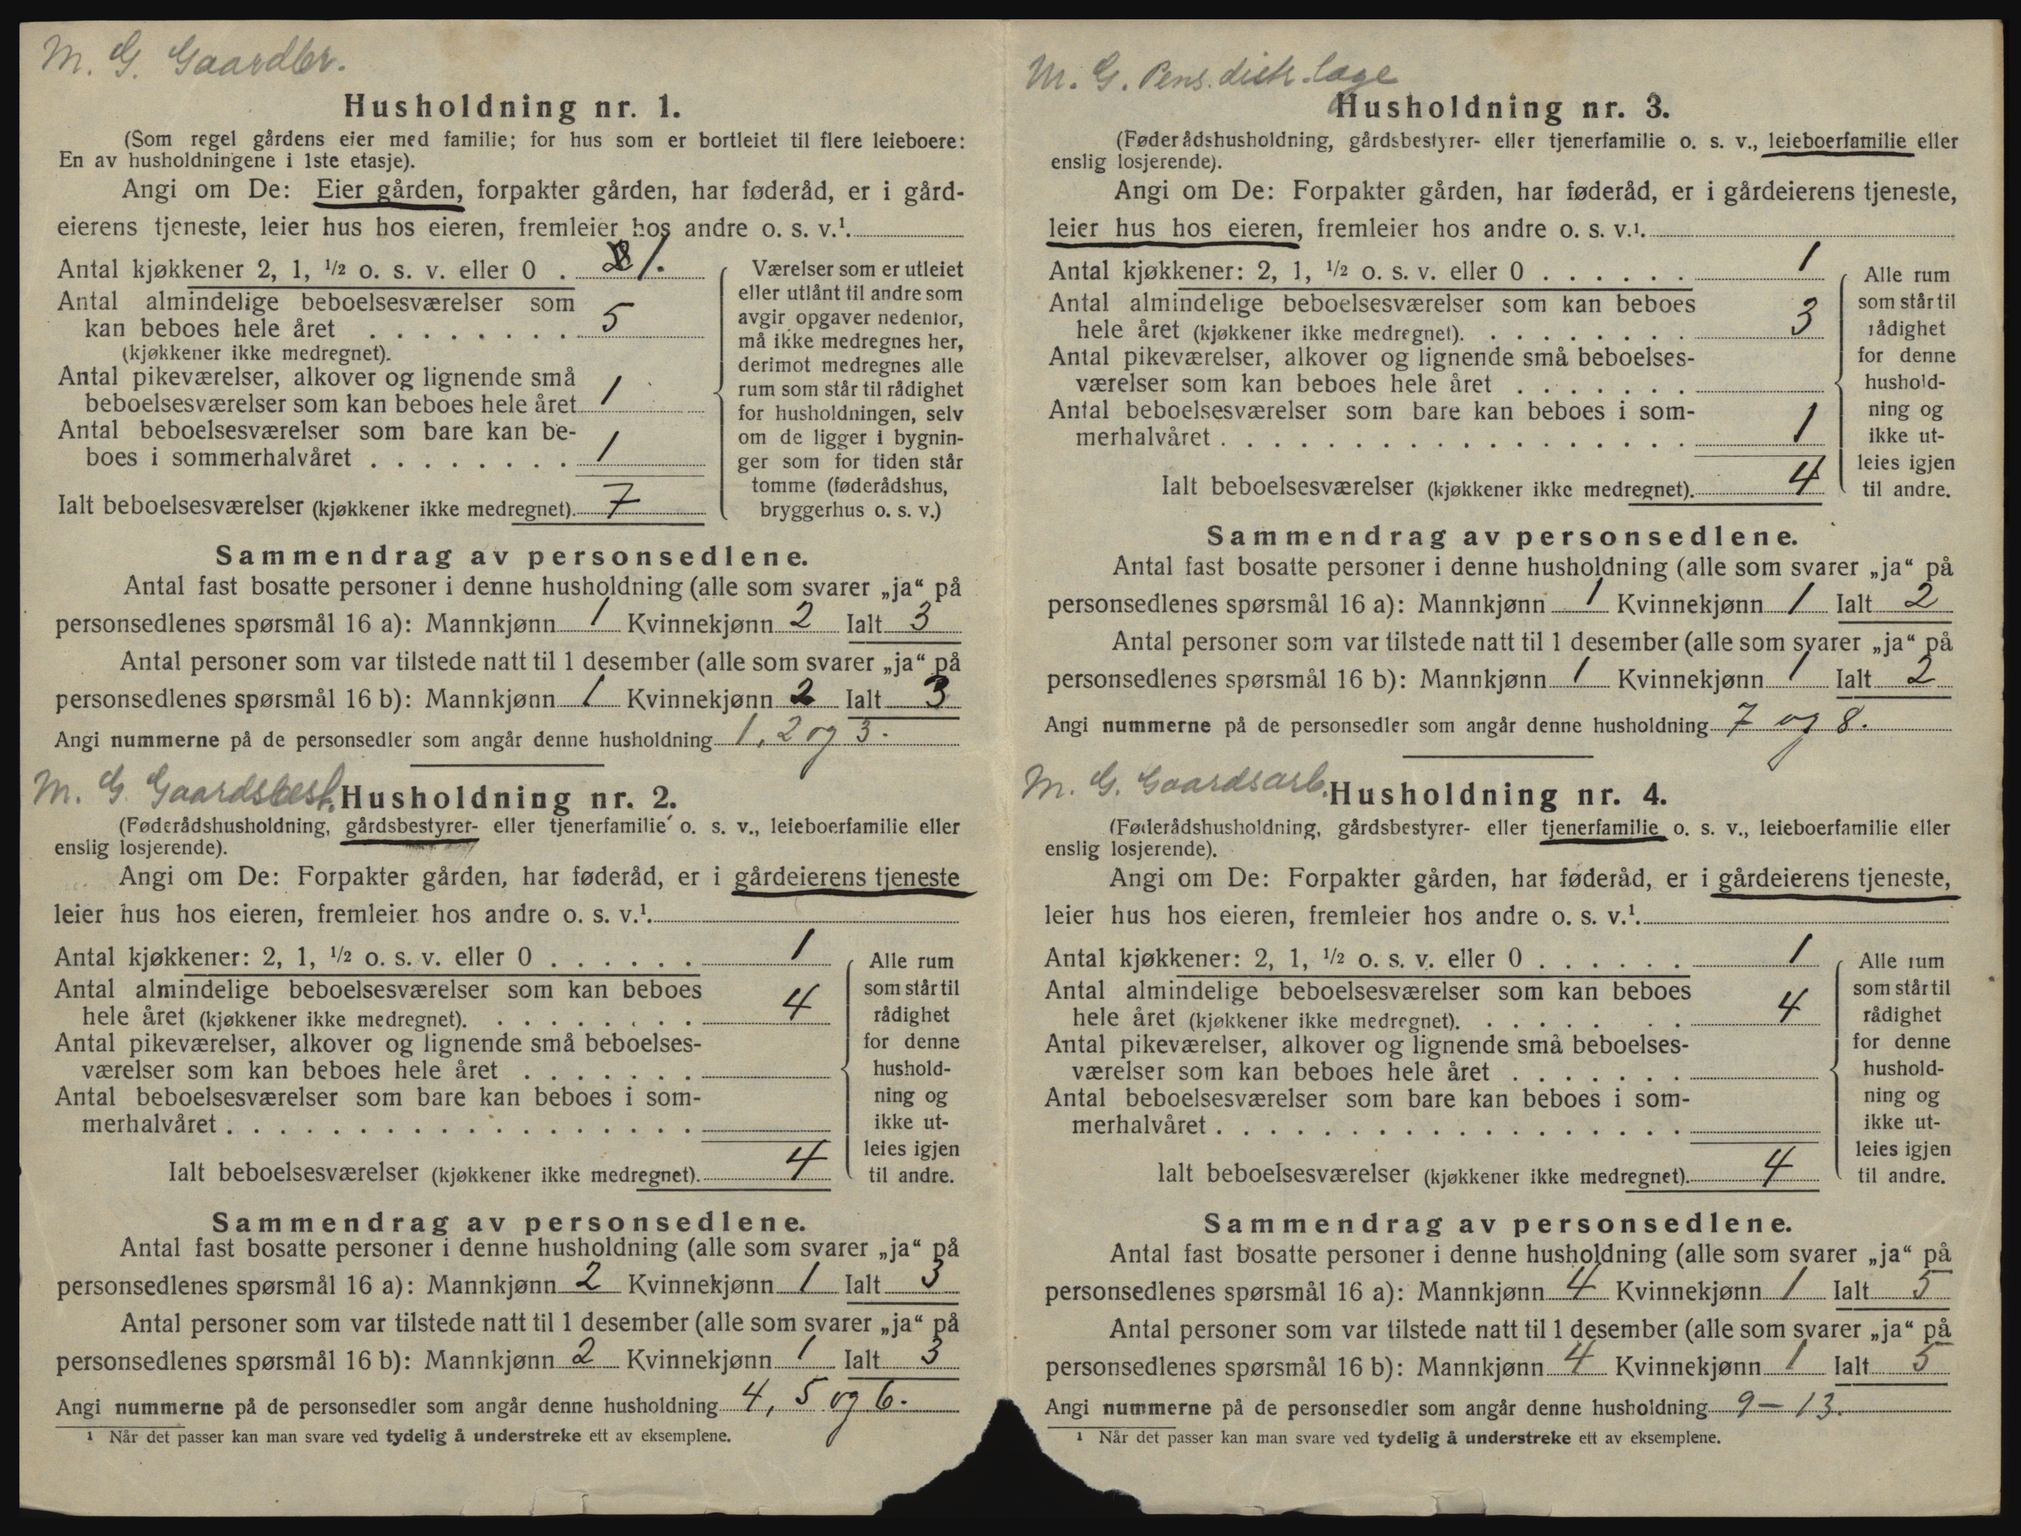 M. G. Gaardbr.
Husholdning nr. 1.
(Som regel gårdens eier med familie; for hus som er bortleiet til flere leieboere:
En av husholdningene i 1ste etasje).
Angi om De: Eier gården, forpakter gården, har føderåd, er i gård-
eierens tjeneste, leier hus hos eieren, fremleier hos andre o. s. v.¹.
Antal kjøkkener 2, 1, 1/2 o. s. v. eller 0 . 1.
Antal almindelige beboelsesværelser som
kan beboes hele året . . . . . . . . 5
(kjøkkener ikke medregnet).
Antal pikeværelser, alkover og lignende små
beboelsesværelser som kan beboes hele året 1
Antal beboelsesværelser som bare kan be-
boes i sommerhalvåret . . . . . . . . 1
Ialt beboelsesværelser (kjøkkener ikke medregnet). 7
Værelser som er utleiet
eller utlånt til andre som
avgir opgaver nedenfor,
må ikke medregnes her,
derimot medregnes alle
rum som står til rådighet
for husholdningen, selv
om de ligger i bygnin-
ger som for tiden står
tomme (føderådshus,
bryggerhus o. s. v.)
Sammendrag av personsedlene.
Antal fast bosatte personer i denne husholdning (alle som svarer „ja“ på
personsedlenes spørsmål 16 a): Mannkjønn 1 Kvinnekjønn 2 Ialt 3
Antal personer som var tilstede natt til 1 desember (alle som svarer „ja“ på
personsedlenes spørsmål 16 b): Mannkjønn 1 Kvinnekjønn 2 Ialt 3
Angi nummerne på de personsedler som angår denne husholdning 1, 2 og 3.
M. G. Gaardsbest. Husholdning nr. 2.
(Føderådshusholdning, gårdsbestyrer- eller tjenerfamilie o. s. v., leieboerfamilie eller
enslig losjerende).
Angi om De: Forpakter gården, har føderåd, er i gårdeierens tjeneste
leier hus hos eieren, fremleier hos andre o. s. v.¹.
Antal kjøkkener: 2, 1, 1/2 o. s. v. eller 0 . . . . . . 1
Antal almindelige beboelsesværelser som kan beboes
hele året (kjøkkener ikke medregnet). . . . . . . . . 4
Antal pikeværelser, alkover og lignende små beboelses-
værelser som kan beboes hele året . . . . . . .
Antal beboelsesværelser som bare kan beboes i som-
merhalvåret . . . . . . . . . . . . . . . . . .
Ialt beboelsesværelser (kjøkkener ikke medregnet). 4
Alle rum
som står til
rådighet
for denne
hushold-
ning og
ikke ut-
leies igjen
til andre.
Sammendrag av personsedlene.
Antal fast bosatte personer i denne husholdning (alle som svarer „ja“ på
personsedlenes spørsmål 16 a): Mannkjønn 2 Kvinnekjønn 1 Ialt 3
Antal personer som var tilstede natt til 1 desember (alle som svarer „ja“ på
personsedlenes spørsmål 16 b): Mannkjønn 2 Kvinnekjønn 1 Ialt 3
Angi nummerne på de personsedler som angår denne husholdning 4, 5 og 6.
¹ Når det passer kan man svare ved tydelig å understreke ett av eksemplene.
M. G. Pens. distr. læge
Husholdning nr. 3.
(Føderådshusholdning, gårdsbestyrer- eller tjenerfamilie o. s. v., leieboerfamilie eller
enslig losjerende).
Angi om De: Forpakter gården, har føderåd, er i gårdeierens tjeneste,
leier hus hos eieren, fremleier hos andre o. s. v.¹.
Antal kjøkkener: 2, 1, 1/2 o. s. v. eller 0 . . . . . . 1
Antal almindelige beboelsesværelser som kan beboes
hele året (kjøkkener ikke medregnet). . . . . . . . . 3
Antal pikeværelser, alkover og lignende små beboelses-
værelser som kan beboes hele året . . . . . . .
Antal beboelsesværelser som bare kan beboes i som-
merhalvåret . . . . . . . . . . . . . . . . . . 1
Ialt beboelsesværelser (kjøkkener ikke medregnet). 4
Alle rum
som står til
rådighet
for denne
hushold-
ning og
ikke ut-
leies igjen
til andre.
Sammendrag av personsedlene.
Antal fast bosatte personer i denne husholdning (alle som svarer „ja“ på
personsedlenes spørsmål 16 a): Mannkjønn 1 Kvinnekjønn 1 Ialt 2
Antal personer som var tilstede natt til 1 desember (alle som svarer „ja“ på
personsedlenes spørsmål 16 b): Mannkjønn 1 Kvinnekjønn 1 Ialt 2
Angi nummerne på de personsedler som angår denne husholdning 7 og 8.
M. G. Gaardsarb. Husholdning nr. 4.
(Føderådshusholdning, gårdsbestyrer- eller tjenerfamilie o. s. v., leieboerfamilie eller
enslig losjerende).
Angi om De: Forpakter gården, har føderåd, er i gårdeierens tjeneste,
leier hus hos eieren, fremleier hos andre o. s. v.¹.
Antal kjøkkener: 2, 1, 1/2 o. s. v. eller 0 . . . . . . 1
Antal almindelige beboelsesværelser som kan beboes
hele året (kjøkkener ikke medregnet). . . . . . . . . 4
Antal pikeværelser, alkover og lignende små beboelses-
værelser som kan beboes hele året . . . . . . .
Antal beboelsesværelser som bare kan beboes i som-
merhalvåret . . . . . . . . . . . . . . . . . .
Ialt beboelsesværelser (kjøkkener ikke medregnet). 4
Alle rum
som står til
rådighet
for denne
hushold-
ning og
ikke ut-
leies igjen
til andre.
Sammendrag av personsedlene.
Antal fast bosatte personer i denne husholdning (alle som svarer „ja“ på
personsedlenes spørsmål 16 a): Mannkjønn 4 Kvinnekjønn 1 Ialt 5
Antal personer som var tilstede natt til 1 desember (alle som svarer „ja“ på
personsedlenes spørsmål 16 b): Mannkjønn 4 Kvinnekjønn 1 Ialt 5
Angi nummerne på de personsedler som angår denne husholdning 9 – 13.
¹ Når det passer kan man svare ved tydelig å understreke ett av eksemplene.